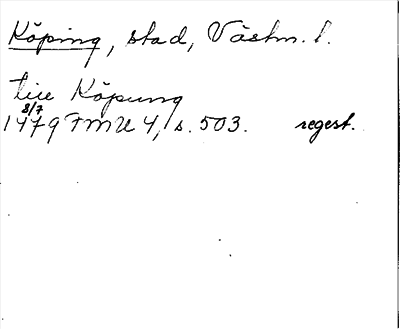 Köping, stad, Västm. l.
till Köpung
8/7
1479 FMU 4, s. 503. regest.